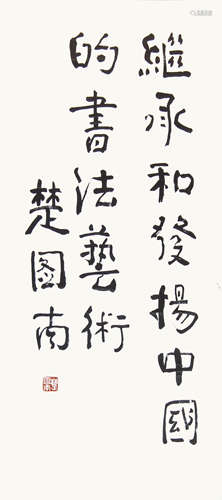 繼承和發揚中國
的書法藝術
楚圖南